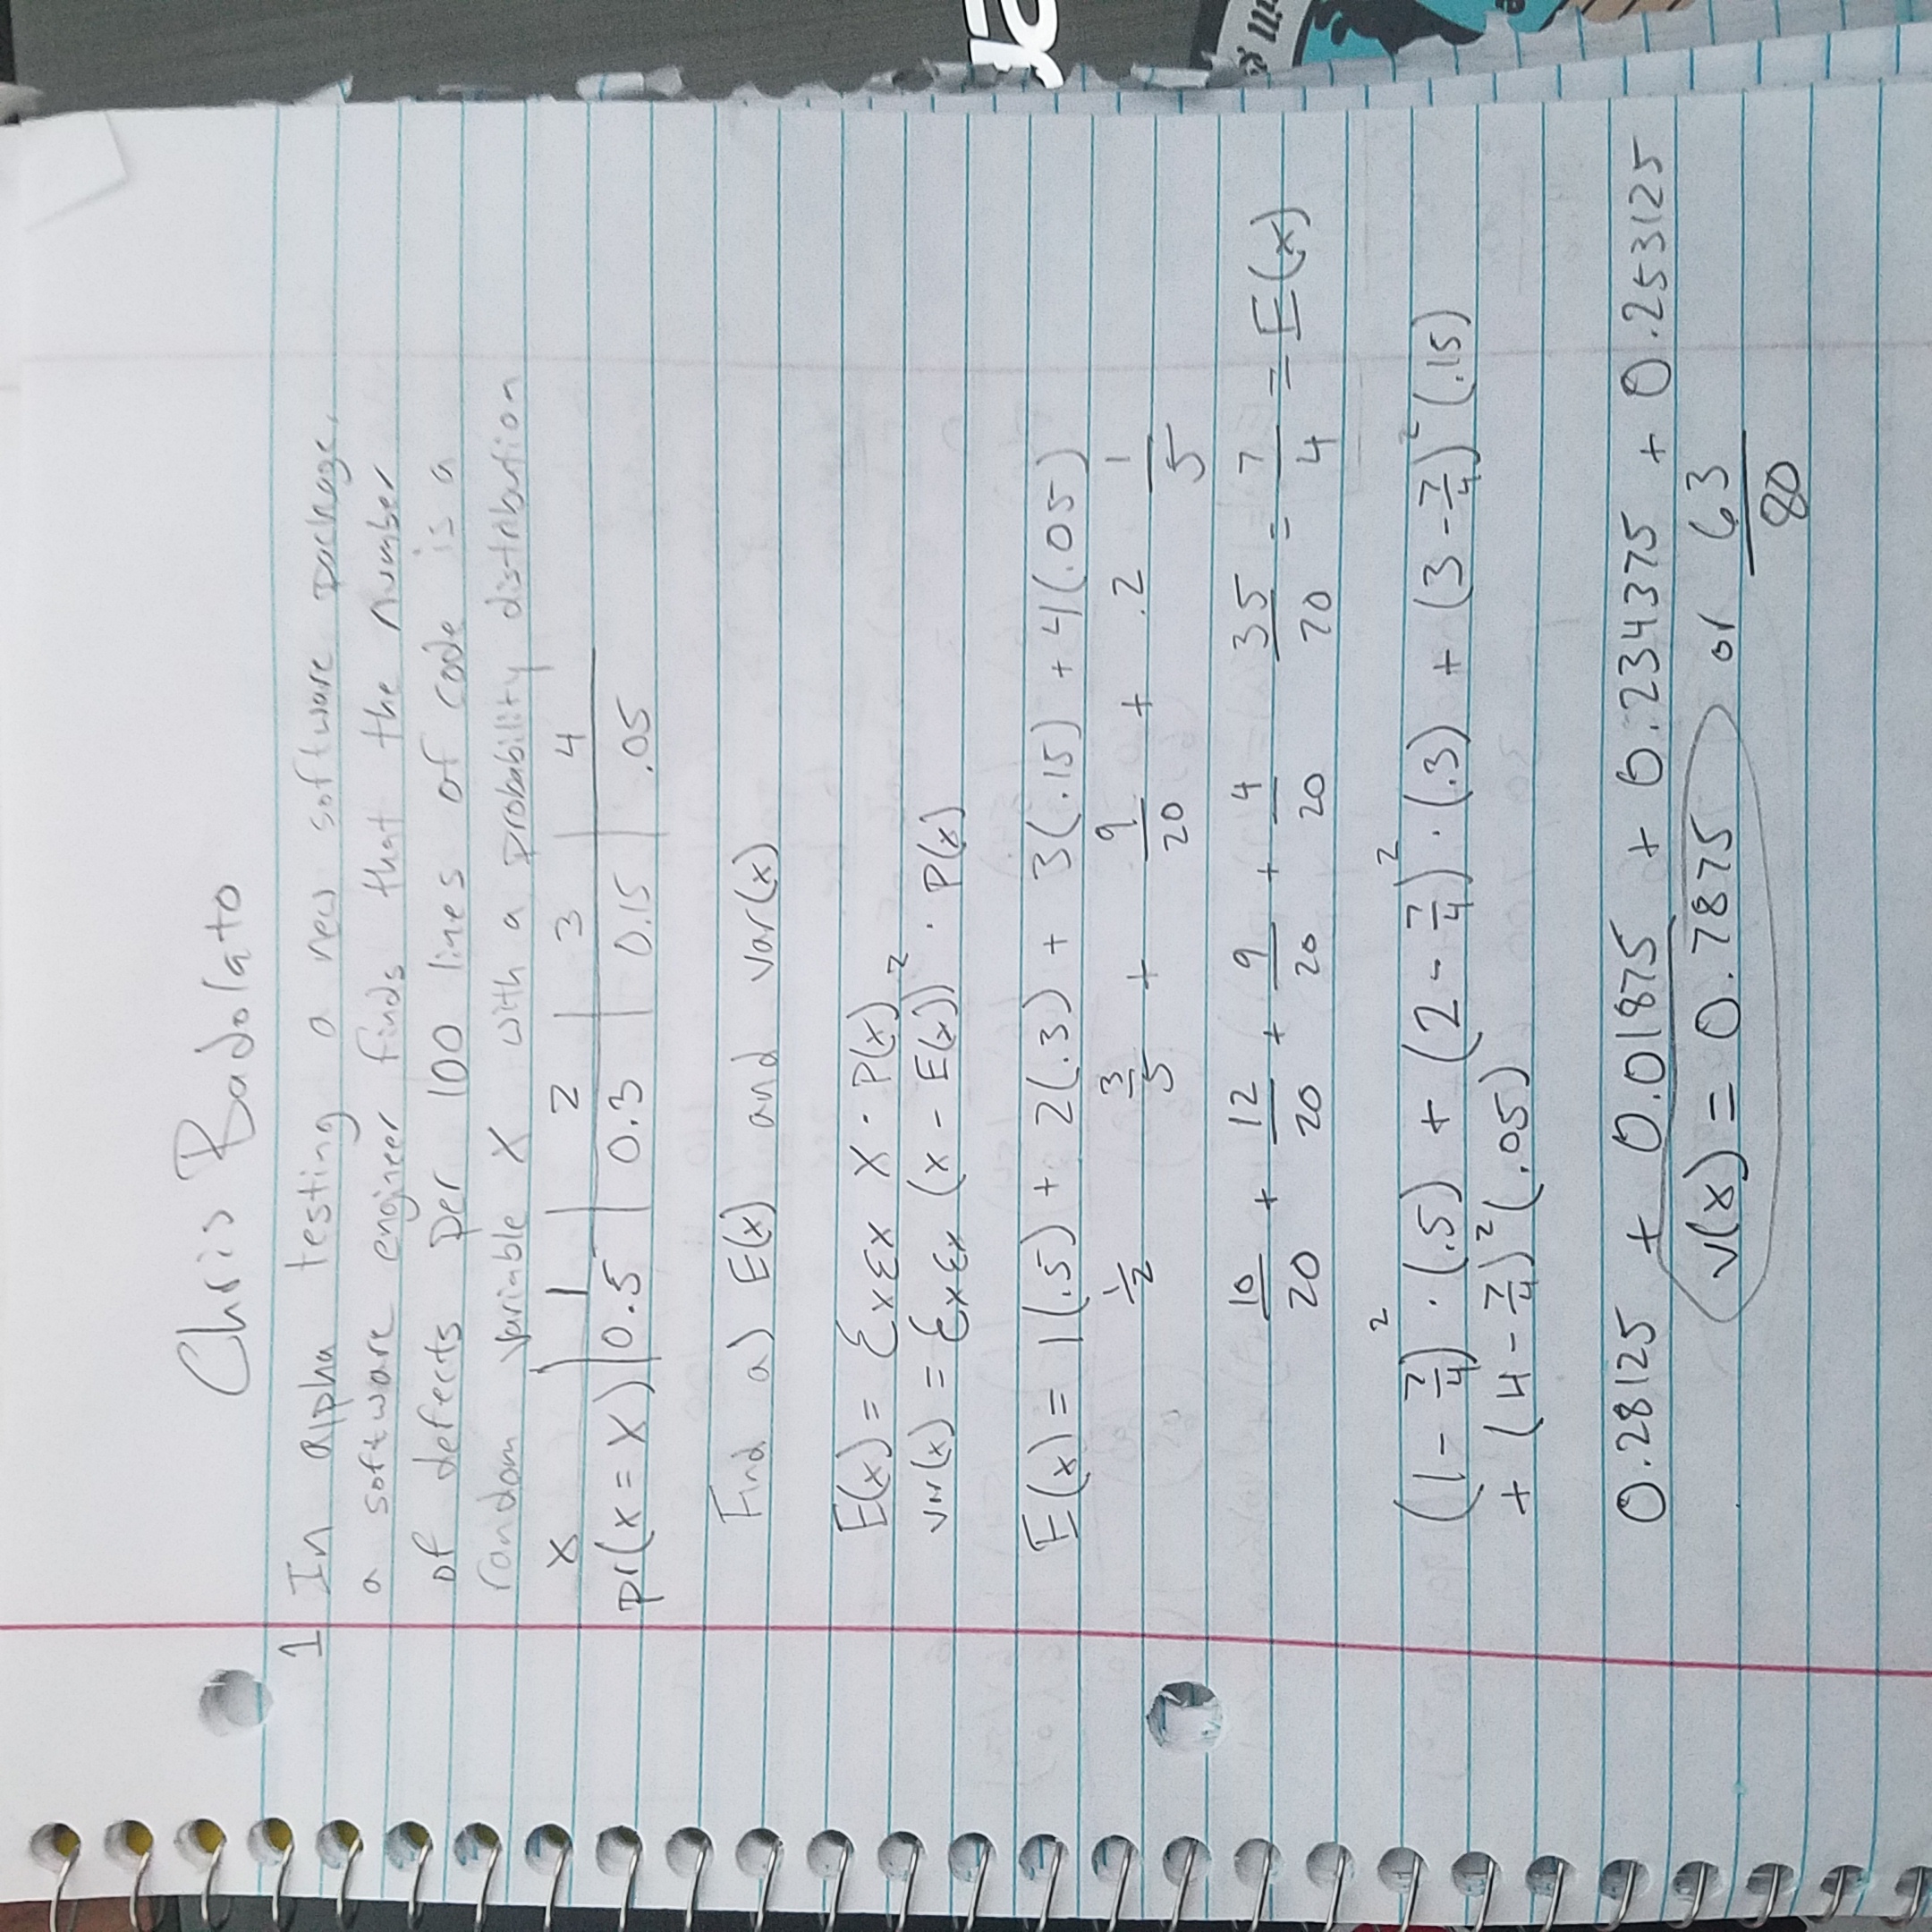 Chris Badolato
1 In alpha testing a new software package,
a software engineer finds that the number
of defects per 100 lines of code is a
random variable X with a probability distribution
x | 1 | 2 | 3 | 4
pr(x = X) | 0.5 | 0.3 | 0.15 | .05
Find a) E(x) and var(x)
E(x) = Σxεx X · P(x)
var(x) = Σxεx (x - E(x))² · P(x)
E(x) = 1(.5) + 2(.3) + 3(.15) + 4(.05)
1/2 3/5 + 9/20 + .2 1/5
10/20 + 12/20 + 9/20 + 4/20 35/20 = 7/4 = E(x)
(1 - 7/4)² · (.5) + (2 - 7/4)² · (.3) + (3 - 7/4)² (.15)
+ (4 - 7/4)² (.05)
0.28125 + 0.01875 + 0.234375 + 0.253125
v(x) = 0.7875 or 63/80